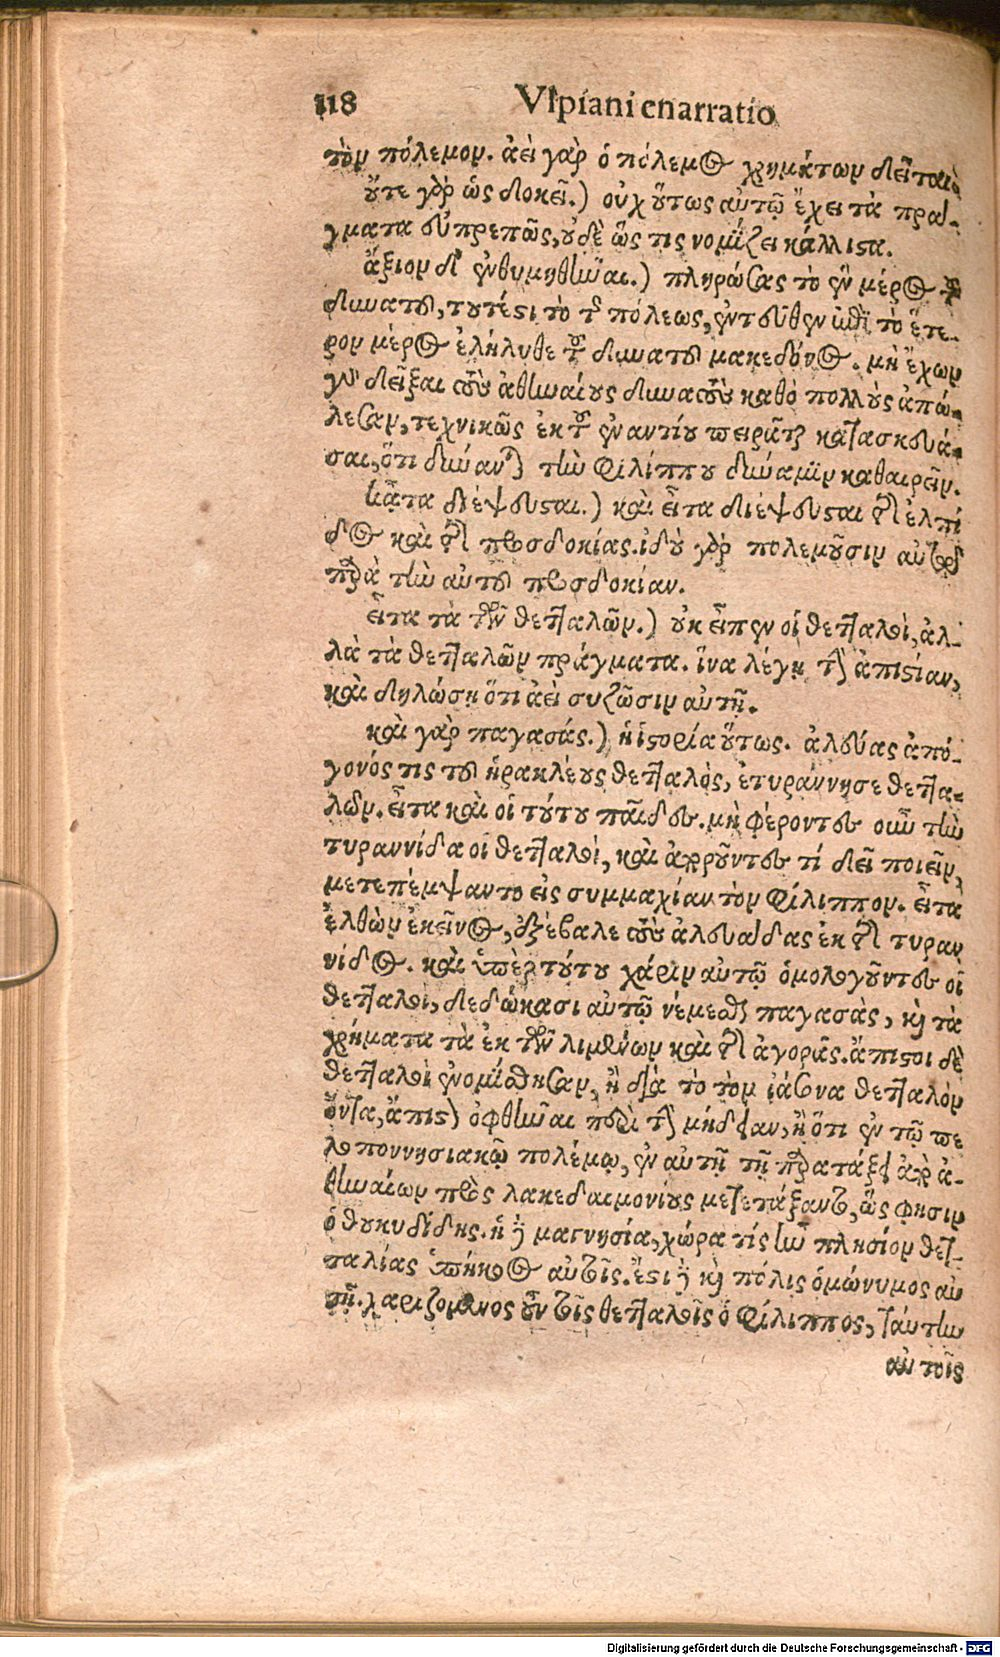 118 Vlpiani enarratio
τὸν πόλεμον. ἀεὶ γὰρ ὁ πόλεμος χρημάτων δεῖται
οὔτε γὰρ ὡς δοκεῖ.) οὐχ οὕτως αὐτῷ ἔχει τὰ πρά-
γματα εὐπρεπῶς, οὐδὲ ὥς τις νομίζει κάλλιστα.
ἄξιον δὲ ἐνθυμηθῆναι.) πληρώσας τὸ ἓν μέρος τοῦ
δυνατοῦ, τουτέστι τὸ τῆς πόλεως, ἐντεῦθεν ἐπὶ τὸ ἕτε-
ρον μέρος ἐλήλυθε τοῦ δυνατοῦ μακεδόνος. μὴ ἔχων
γοῦν δεῖξαι τοὺς ἀθηναίους δυνατοὺς καθὸ πολλοὺς ἀπώ-
λεσαν, τεχνικῶς ἐκ τοῦ ἐναντίου πειρᾶται κατασκευά-
σαι, ὅτι δύνανται τὴν Φιλίππου δύναμιν καθαιρεῖν.
κᾆτα διέψευσται.) καὶ εἶτα διέψευσται τῆς ἐλπί
δος καὶ τῆς προσδοκίας. ἰδοὺ γὰρ πολεμοῦσιν αὐτὸν
παρὰ τὴν αὐτοῦ προσδοκίαν.
εἶτα τὰ τῶν θετταλῶν.) οὐκ εἶπεν οἱ θετταλοὶ, ἀλ-
λὰ τὰ θετταλῶν πράγματα. ἵνα λέγῃ τὴν ἀπιστίαν,
καὶ δηλώσῃ ὅτι ἀεὶ συζῶσιν αὐτῇ.
καὶ γὰρ παγασάς.) ἡ ἱστορία οὕτως. ἀλεύας ἀπό-
γονός τις τοῦ ἡρακλέους θετταλὸς, ἐτυράννησε θεττα-
λῶν. εἶτα καὶ οἱ τούτου παῖδες. μὴ φέροντες οὖν τὴν
τυραννίδα οἱ θετταλοὶ, καὶ ἀποροῦντες τί δεῖ ποιεῖν,
μετεπέμψαντο εἰς συμμαχίαν τὸν Φίλιππον. εἶτα
ἐλθὼν ἐκεῖνος, ἐξέβαλε τοὺς ἀλευάδας ἐκ τῆς τυραν
νίδος. καὶ ὑπὲρ τούτου χάριν αὐτῷ ὁμολογοῦντες οἱ
θετταλοὶ, δεδώκασι αὐτῷ νέμεσθαι παγασὰς, καὶ τὰ
χρήματα τὰ ἐκ τῶν λιμένων καὶ τῆς ἀγορᾶς. ἄπιστοι δὲ
θετταλοὶ ἐνομίσθησαν, ἢ διὰ τὸ τὸν ἰάσονα θετταλὸν
ὄντα, ἄπιστον ὀφθῆναι περὶ τὴν μήδειαν, ἢ ὅτι ἐν τῷ πε
λοποννησιακῷ πολέμῳ, ἐν αὐτῇ τῇ παρατάξει ἀπὸ ἀ-
θηναίων πρὸς λακεδαιμονίους μετετάξαντο, ὥς φησιν
ὁ θουκυδίδης. ἡ δὲ μαγνησία, χώρα τίς ἦν πλησίον θετ-
ταλίας ὑπήκοος αὐτοῖς. ἔστι δὲ καὶ πόλις ὁμώνυμος αὐ
τῇ. χαριζόμενος οὖν τοῖς θετταλοῖς ὁ Φίλιππος, ταύτην
αὐτοῖς
Digitalisierung gefördert durch die Deutsche Forschungsgemeinschaft - DFG